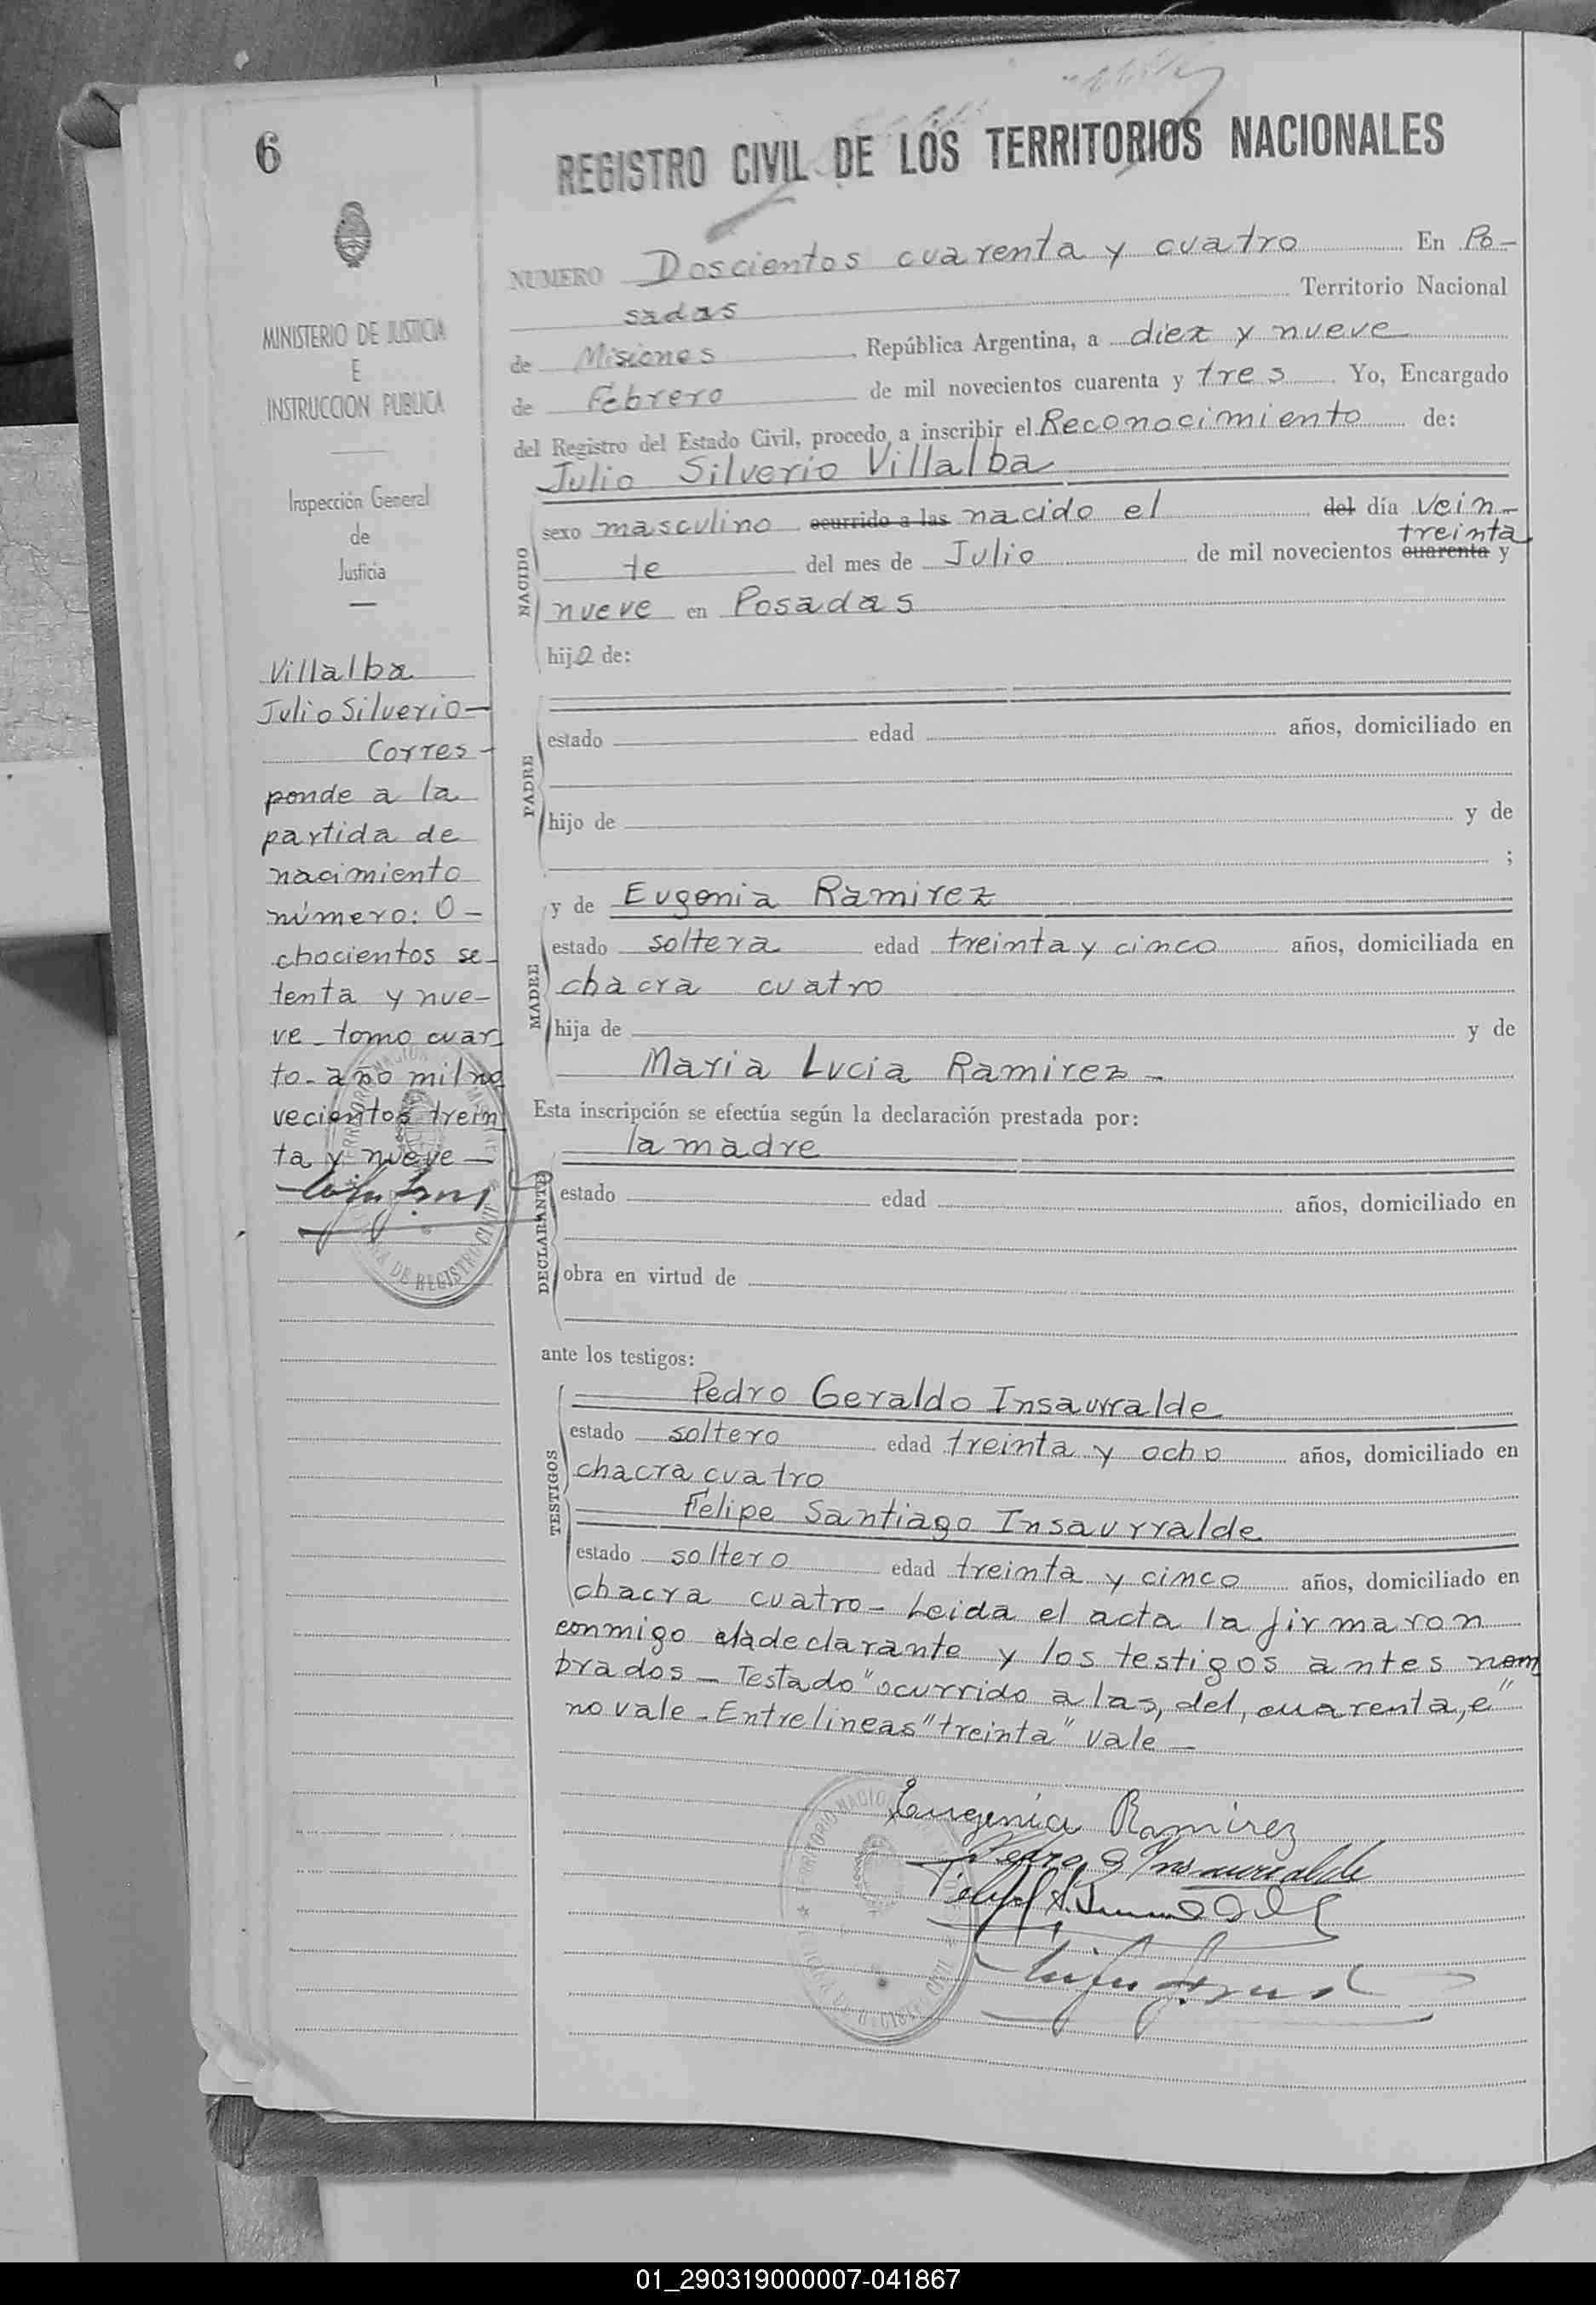 6
REGISTRO CIVIL DE LOS TERRITORIOS NACIONALES
MINISTERIO DE JUSTICIA
E
INSTRUCCION PUBLICA
Inspección General
de
Justicia
Villalba
Julio Silverio—
Corres-
ponde a la
partida de
nacimiento
número: O-
chocientos se-
tenta y nue-
ve - tomo cuar
to - año mil no
vecientos trein
ta y nueve —
NUMERO Doscientos cuarenta y cuatro En Po-
sadas Territorio Nacional
de Misiones, República Argentina, a diez y nueve
de Febrero de mil novecientos cuarenta y tres. Yo, Encargado
del Registro del Estado Civil, procedo a inscribir el Reconocimiento de:
Julio Silverio Villalba
NACIDO
sexo masculino ocurrido a las nacido el del día vein-
treinta
te del mes de Julio de mil novecientos cuarenta y
nueve en Posadas
hijo de:
PADRE
estado edad años, domiciliado en
hijo de y de
;
MADRE
y de Eugenia Ramirez
estado soltera edad treinta y cinco años, domiciliada en
chacra cuatro
hija de y de
Maria Lucia Ramirez -
Esta inscripción se efectúa según la declaración prestada por:
la madre
DECLARANTE
estado edad años, domiciliado en
obra en virtud de
ante los testigos:
TESTIGOS
Pedro Geraldo Insaurralde
estado soltero edad treinta y ocho años, domiciliado en
chacra cuatro
Felipe Santiago Insaurralde
estado soltero edad treinta y cinco años, domiciliado en
chacra cuatro - Leida el acta la firmaron
conmigo la declarante y los testigos antes nom
brados - Testado "ocurrido a las, del, cuarenta, e"
no vale - Entrelineas "treinta" vale —
Eugenia Ramirez
Pedro G Insaurralde
01_290319000007-041867